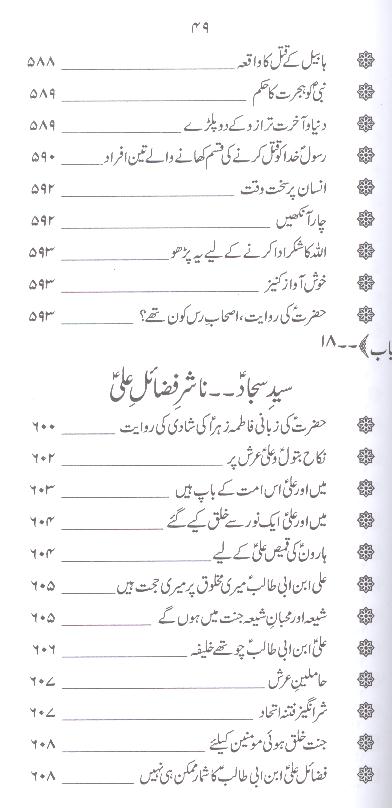 ۴۹
ہابیل کے قتل کا واقعہ ۵۸۸
نبیؐ کو ہجرت کا حکم ۵۸۹
دنیا و آخرت ترازو کے دو پلڑے ۵۸۹
رسولؐ خدا کو قتل کرنے کی قسم کھانے والے تین افراد ۵۹۰
انسان پر سخت وقت ۵۹۲
چار آنکھیں ۵۹۲
اللہ کا شکر ادا کرنے کے لیے یہ پڑھو ۵۹۳
خوش آواز کنیز ۵۹۳
حضرتؑ کی روایت، اصحابِ رس کون تھے؟ ۵۹۳
باب ۔۔ ۱۸
سیدِ سجادؑ ۔۔ ناشرِ فضائلِ علیؑ
حضرتؑ کی زبانی فاطمہ زہراؑ کی شادی کی روایت ۶۰۰
نکاح بتولؑ و علیؑ عرش پر ۶۰۲
میں اور علیؑ اس امت کے باپ ہیں ۶۰۳
میں اور علیؑ ایک نور سے خلق کیے گئے ۶۰۴
ہارونؑ کی قمیص علیؑ کے لیے ۶۰۴
علی ابن ابی طالبؑ میری مخلوق پر میری حجت ہیں ۶۰۵
شیعہ اور محبانِ شیعہ جنت میں ہوں گے ۶۰۵
علیؑ ابن ابی طالبؑ چوتھے خلیفہ ۶۰۶
حاملینِ عرش ۶۰۷
شر انگیز فتنہ اتحاد ۶۰۷
جنت خلق ہوئی مومنین کیلئے ۶۰۸
فضائلِ علیؑ ابن ابی طالبؑ کا شمار ممکن ہی نہیں ۶۰۸